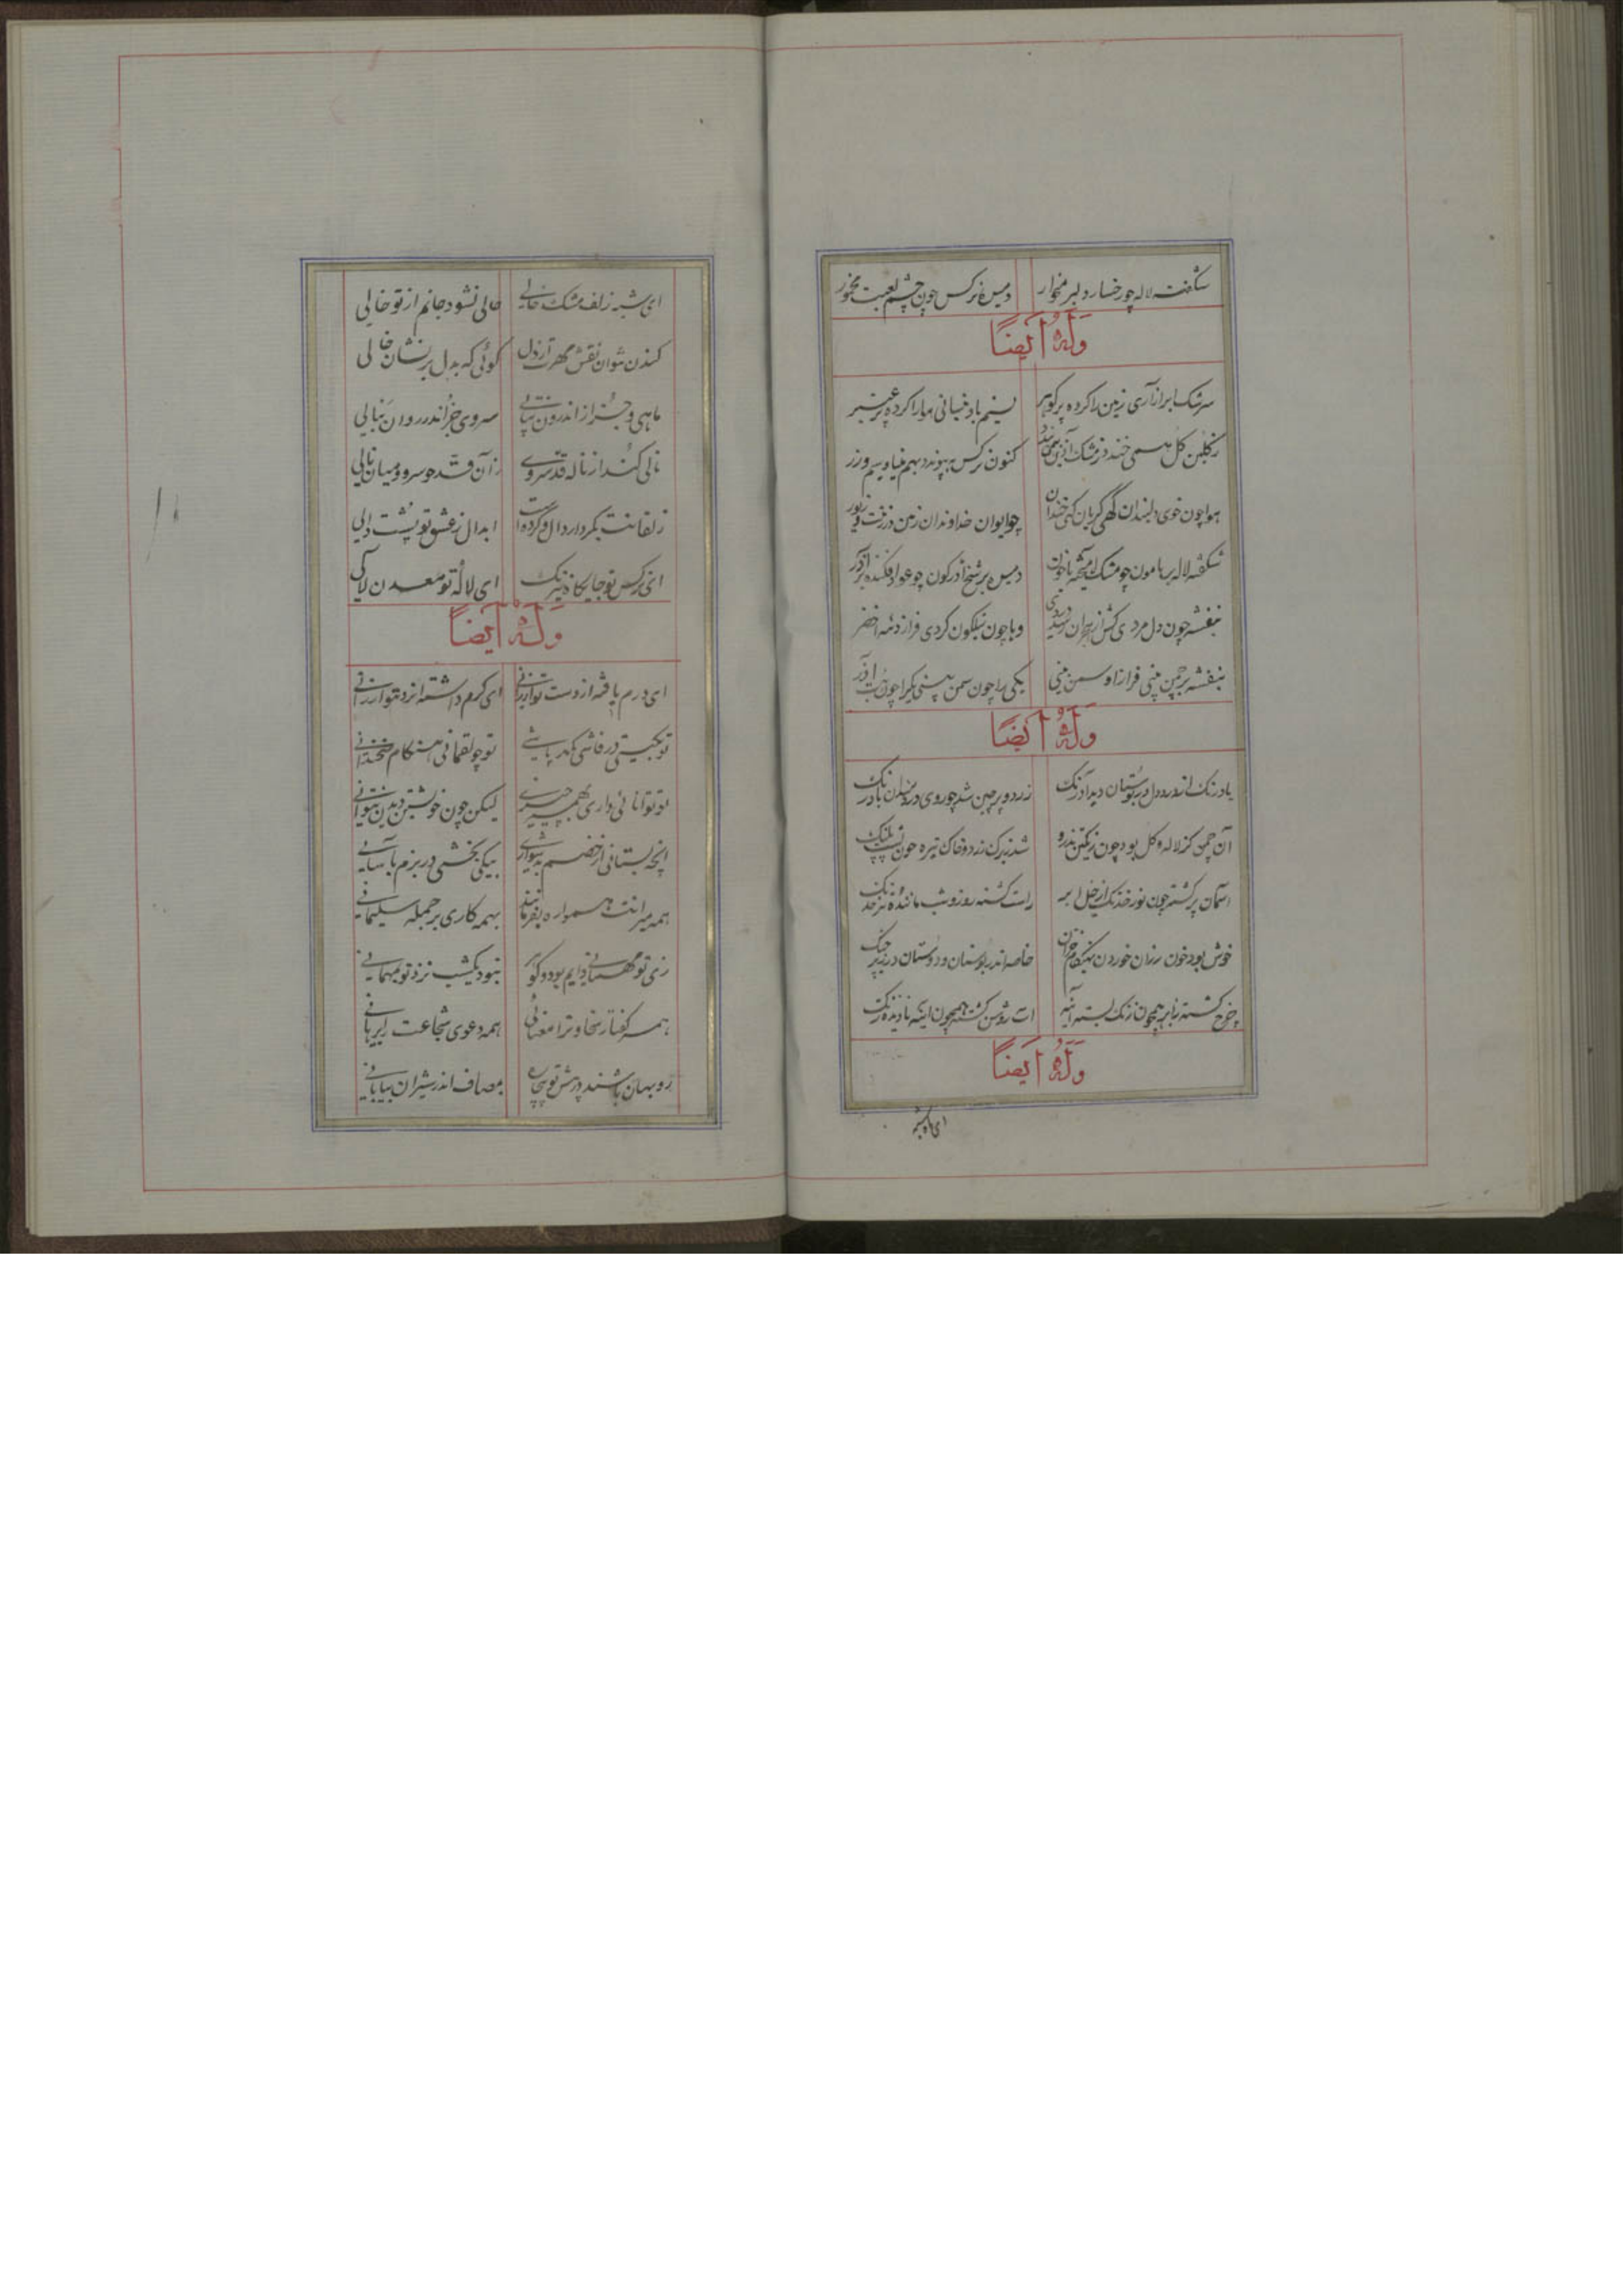 شکفت لاله چو رخسار دلبر میخوار دمیده نرکس چون چشم لعبت مخمور
وَلَهُ اَیضاً
سرشک ابر ازآری زمین را کرده پر کوهر نسیم باد نیسانی هوا را کرده پر عنبر
ز کلبن کل همی خندد کنون نرکس بپیوندد بهم مینا و سیم و زر
هوا چون خوی دلبندان کهی کریان کهی خندان چو ایوان خداوندان زمین در زینت و زیور
شکفته لاله بر هامون چو مشک آمیخته با خون دمیده بر شخ آذرکون چو عود افکنده بر آذر
بنفشه چون دل مردی کش از هجران رسد دردی و یا چون نیلکون کردی فراز دیبه اخضر
بنفشه بر چمن بینی فراز او سمن بینی یکی را چون سمن بینی یکی را چون بت آذر
وَلَهُ اَیضاً
بادرنک اندر دل در بوستان دید آدرنک زرد و پر چین شد چو روی دردمندان بادرنک
آن چمن کز لاله و کل بود چون رنکین تذرو شد ز برک زرد و خاک تیره چون پشت پلنک
آسمان پر کشته چون توز خدنک از خیل ابر راست کشته روز و شب مانندهٔ تیر خدنک
خوش بود خون رزان خوردن بهنکام خزان خاصه اندر بوستان و دوستان در زیر چنک
چرخ کشته با ابر همچون زنک بسته آینه آب روشن کشته همچون آینه نادیده زنک
وَلَهُ اَیضاً
ای ماه شبه
ای شبه زلف مشک خالی خالی نشود جانم از تو خالی
کندن نتوان نقش مهرت از دل کوئی که بدل بر نشان خالی
ماهی و جز از اندرون نتابی سروی جز اندر روان نبالی
نالی کند از ناله قد سروی زان قد چو سرو و میان نالی
زلفانت بکردار دال و کرده است ابدال ز عشق تو پشت دالی
ای نرکس تو جایکاه نیرنک ای لالهٔ تو معدن لآلی
وَلَهُ اَیضاً
ای درم یافته از دست تو ارزانی ای کرم داشته ایزد بتو ارزانی
تو بکیتی در فاشی بکهر پاشی تو چو لقمانی هنکام سخندانی
تو توانائی داری بهمه چیزی لیکن چون خویشتن دیدن نتوانی
آنچه بستانی از خصم بدشواری بیکی بخشی در بزم بآسانی
همه میرانت همواره بفرمانند بهمه کاری بر جمله سلیمانی
زی تو مهمانی دایم بود و کوئی نبود یکشب نزد تو مهمانی
همه کفتار سخا و ترا معنی همه دعوی شجاعت را برهانی
روبهان باشند در پیش تو بیچاره بمصاف اندر شیران بیابانی